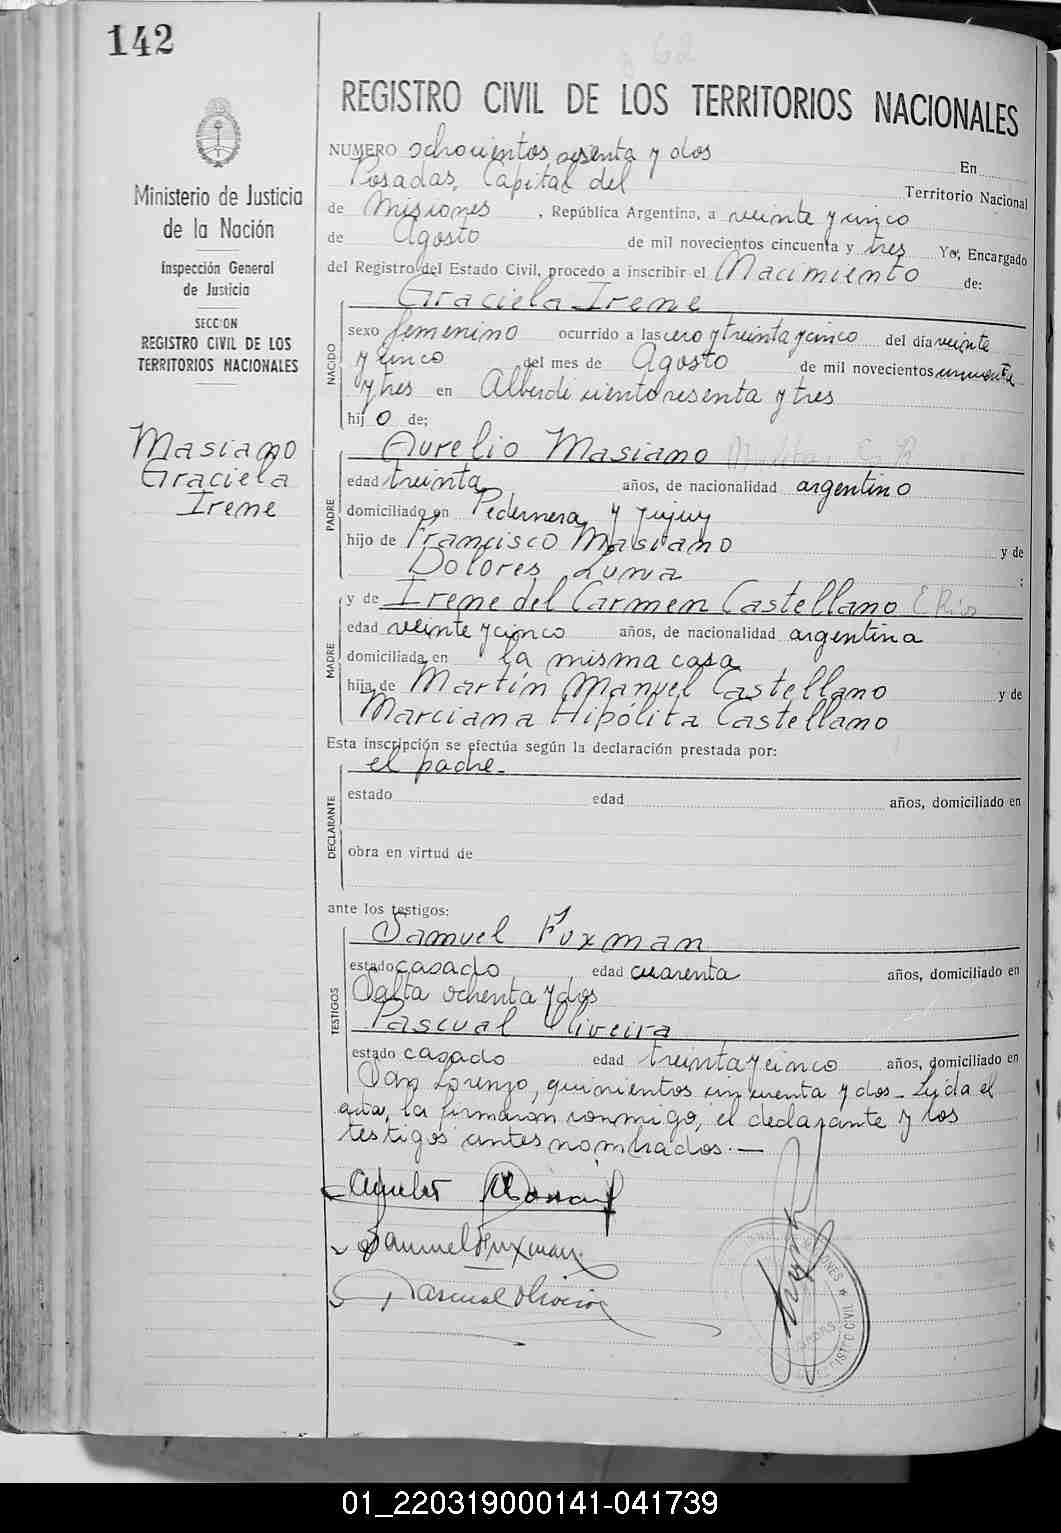 142
862
REGISTRO CIVIL DE LOS TERRITORIOS NACIONALES
Ministerio de Justicia
de la Nación
Inspección General
de Justicia
SECCION
REGISTRO CIVIL DE LOS
TERRITORIOS NACIONALES
Masiano
Graciela
Irene
NUMERO ochocientos sesenta y dos En
Posadas, Capital del Territorio Nacional
de Misiones, República Argentina, a veinte y cinco
de Agosto de mil novecientos cincuenta y tres Yo, Encargado
del Registro del Estado Civil, procedo a inscribir el Nacimiento de:
NACIDO
Graciela Irene
sexo femenino ocurrido a las cero y treinta y cinco del día veinte
y cinco del mes de Agosto de mil novecientos cincuenta
y tres en Alberdi ciento sesenta y tres
hij o de;
PADRE
Aurelio Masiano
edad treinta años, de nacionalidad argentino
domiciliado en Pedernera y Jujuy
hijo de Francisco Masiano y de
Dolores Luna ;
MADRE
y de Irene del Carmen Castellano
edad veinte y cinco años, de nacionalidad argentina
domiciliada en la misma casa
hija de Martín Manuel Castellano y de
Marciana Hipólita Castellano
Esta inscripción se efectúa según la declaración prestada por:
DECLARANTE
el padre.-
estado edad años, domiciliado en
obra en virtud de
ante los testigos:
TESTIGOS
Samuel Fuxman
estado casado edad cuarenta años, domiciliado en
Salta ochenta y dos
Pascual Oliveira
estado casado edad treinta y cinco años, domiciliado en
San Lorenzo, quinientos cincuenta y dos - Leída el
acta, la firmaron conmigo, el declarante y los
testigos antes nombrados.-
Samuel Fuxman
Pascual Oliveira
REGISTRO CIVIL
01_220319000141-041739